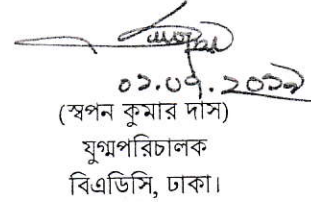 ০১.০৭.২০১৯
(স্বপন কুমার দাস)
যুগ্মপরিচালক
বিএডিসি, ঢাকা।